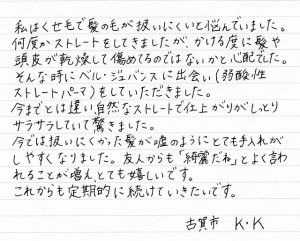 私はくせ毛で髪の毛が扱いにくいと悩んでいました。
何度かストレートをしてきましたが、かける度に髪や
頭皮が乾燥して傷めてるのではないかと心配でした。
そんな時にベル・ジュバンスに出会い（弱酸性
ストレートパーマ）をしていただきました。
今までとは違い、自然なストレートで仕上がりがしっとり
サラサラしていて驚きました。
今では扱いにくかった髪が嘘のようにとても手入れが
しやすくなりました。友人からも「綺麗だね」とよく言わ
れることが増え、とても嬉しいです。
これからも定期的に続けていきたいです。
古賀市 K・K